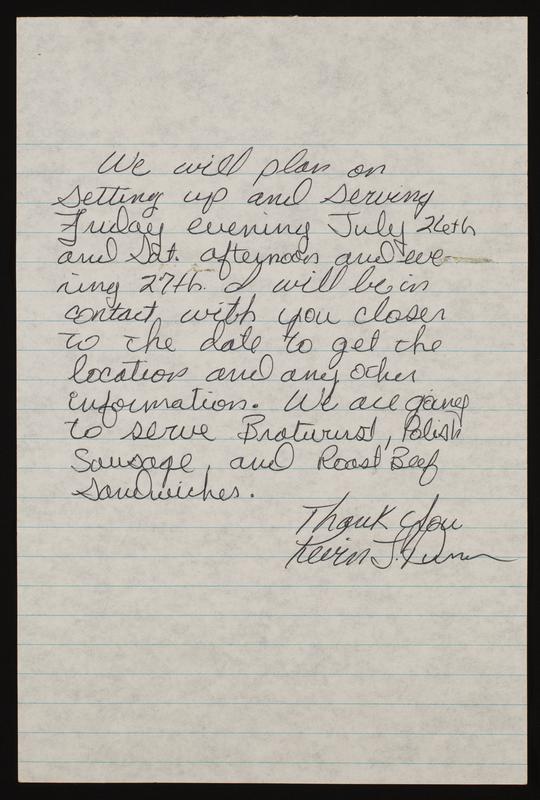 We will plan on
setting up and serving
Friday evening July 26th
and Sat. afternoon and eve-
ning 27th. I will be in
contact with you closer
to the date to get the
location and any other
information. We are going
to serve Bratwurst, Polish
Sausage, and Roast Beef
Sandwiches.
Thank You
Kevin J.